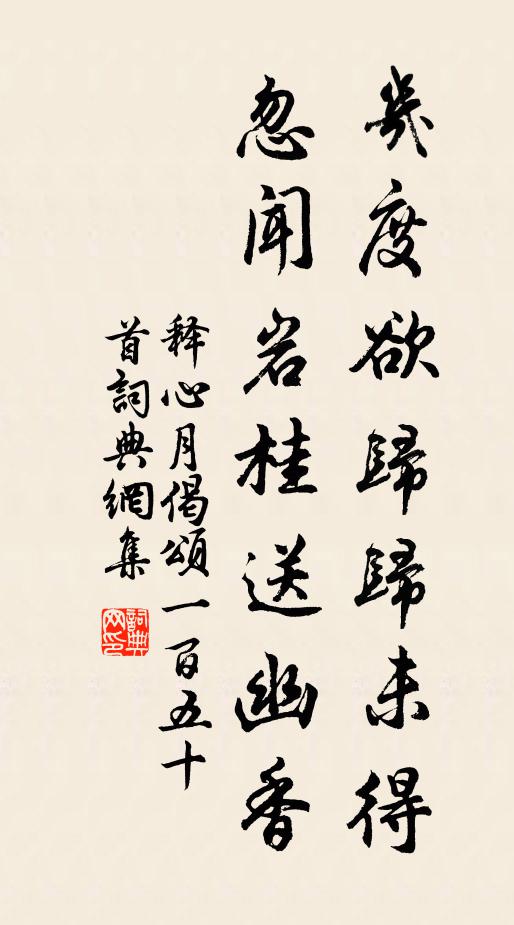 幾度欲歸歸未得
忽聞岩桂送幽香
釋心月偈頌一百五十
首詞典網集
詞典網印